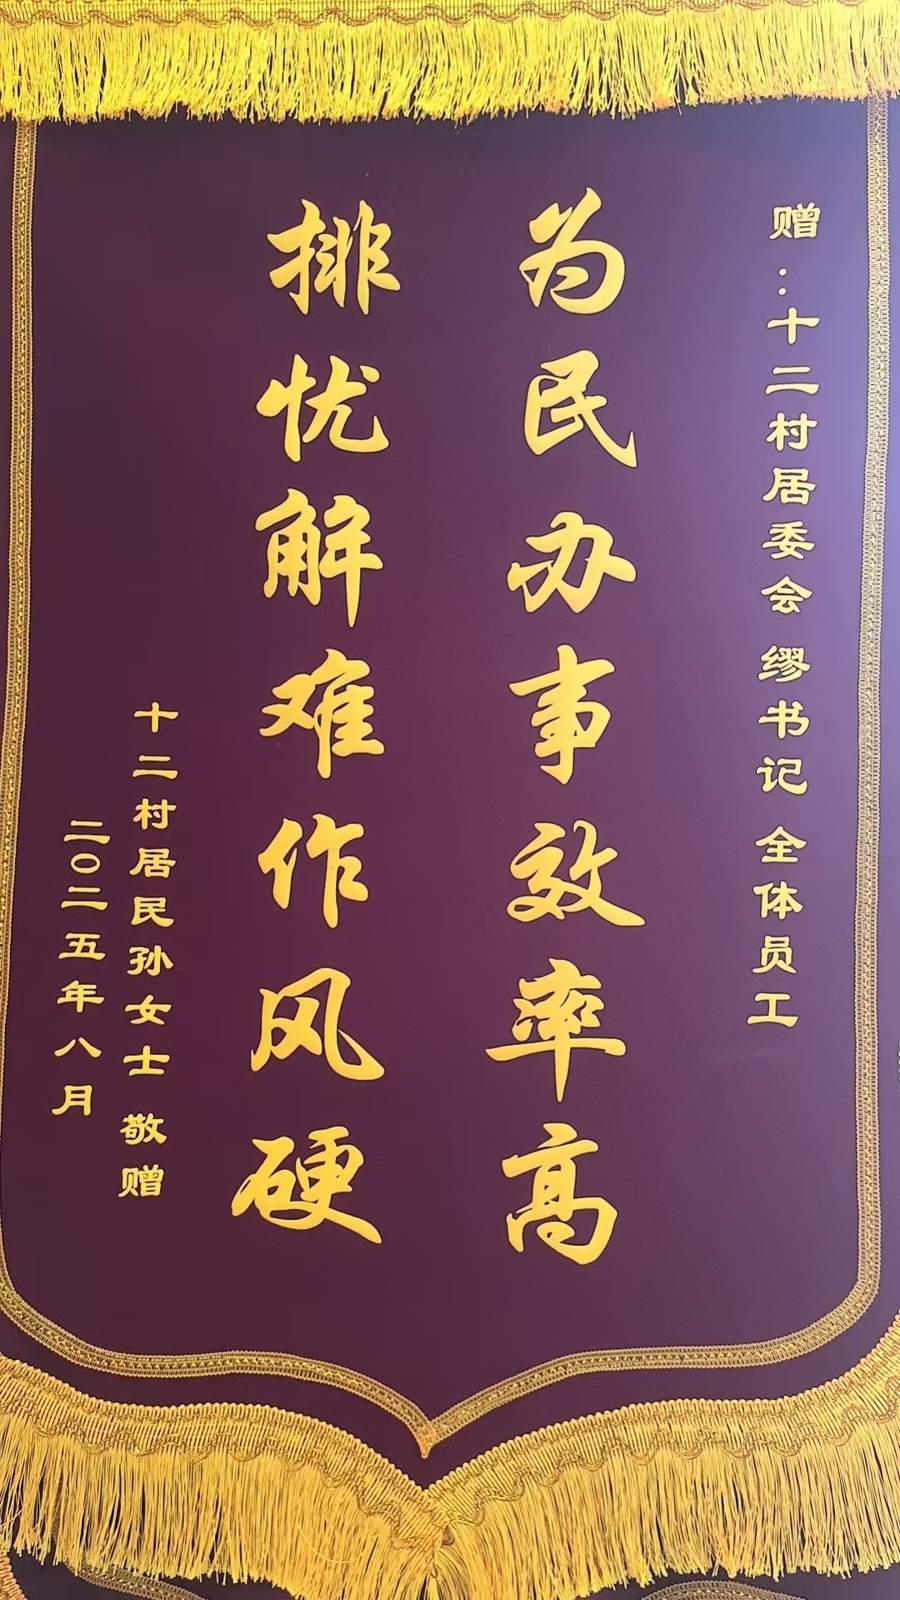 赠：十二村居委会 缪书记 全体员工
为民办事效率高
排忧解难作风硬
十二村居民孙女士 敬赠
二〇二五年八月